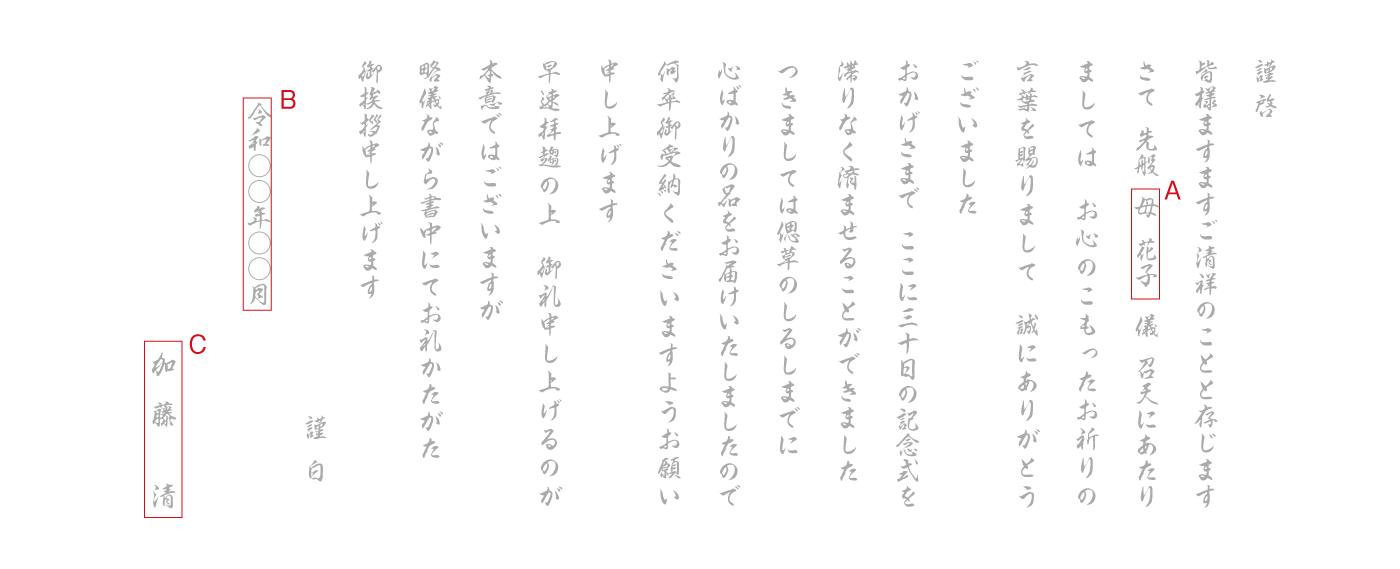 謹啓
皆様ますますご清祥のことと存じます
さて 先般 母 花子 儀 召天にあたり
A
ましては お心のこもったお祈りの
言葉を賜りまして 誠にありがとう
ございました
おかげさまで ここに三十日の記念式を
滞りなく済ませることができました
つきましては偲草のしるしまでに
心ばかりの品をお届けいたしましたので
何卒御受納くださいますようお願い
申し上げます
早速拝趨の上 御礼申し上げるのが
本意ではございますが
略儀ながら書中にてお礼かたがた
御挨拶申し上げます
謹白
B
令和〇〇年〇〇月
C
加藤 清